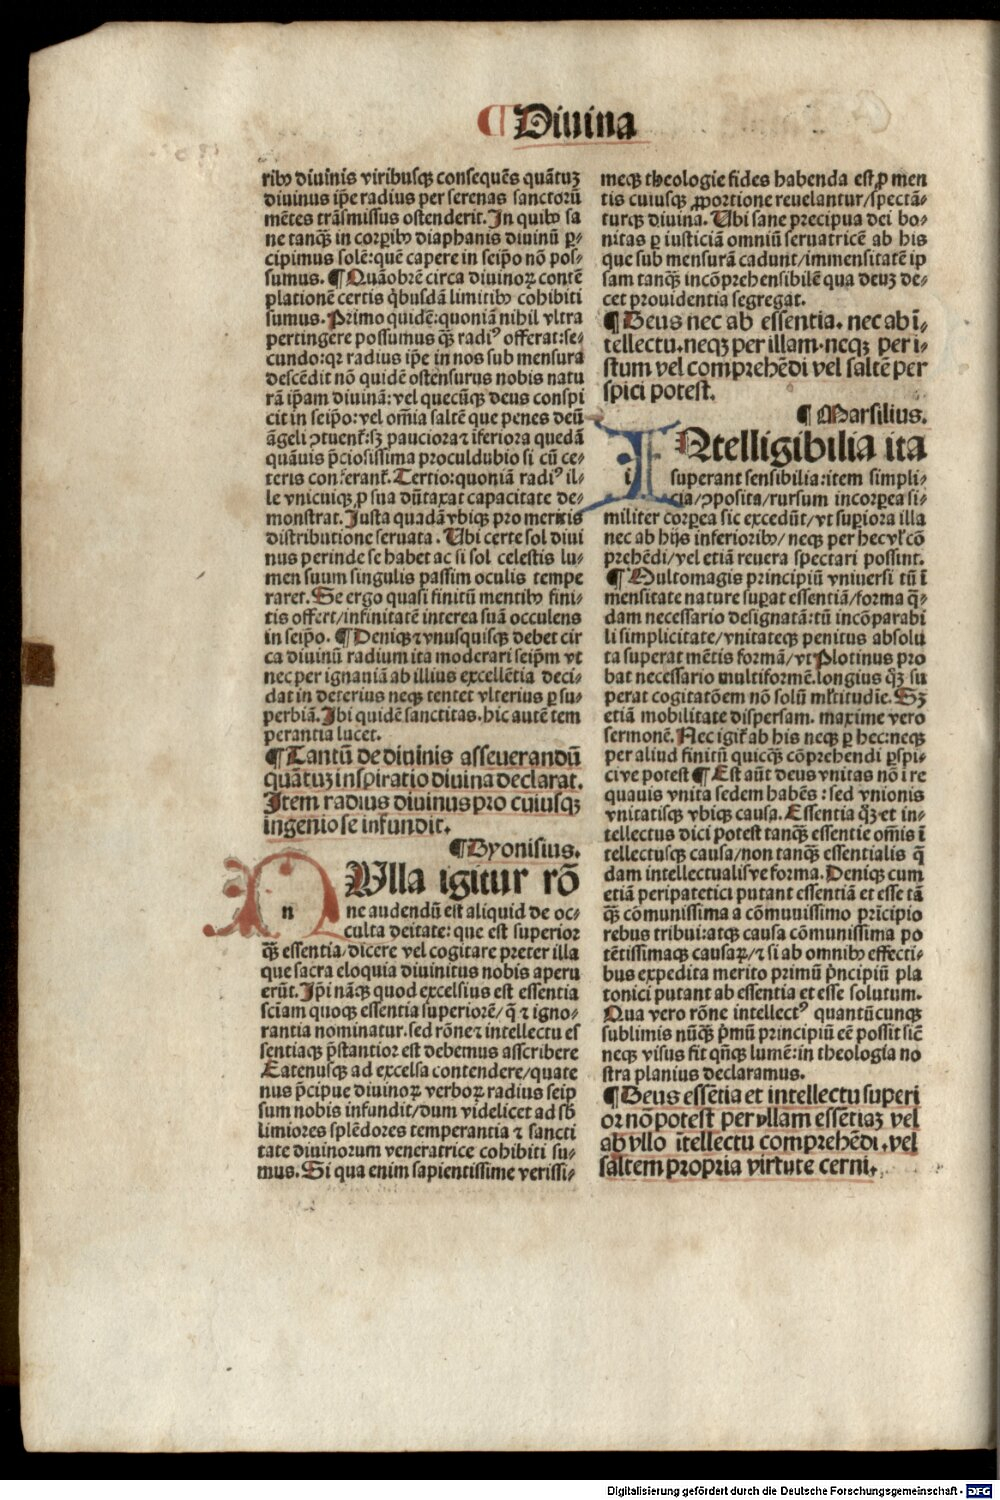 ¶ Diuina
ribꝰ diuinis viribusqꝫ consequēs quātuꝫ
diuinus ip̄e radius per serenas sanctorū
mētes trāsmissus ostenderit. In quibꝰ sa
ne tanqꝫ̄ in corꝑibꝰ diaphanis diuinū ꝑ-
cipimus solē: quē capere in seip̄o nō pos-
sumus. ¶ Quāobrē circa diuinoꝝ contē
plationē certis q̇busdā limitibꝰ cohibiti
sumus. Primo quidē: quoniā nihil vltra
pertingere possumus qꝫ̄ radiꝰ offerat: se-
cundo: qꝛ radius ip̄e in nos sub mensura
descēdit nō quidē ostensurus nobis natu
rā ip̄am diuinā: vel quecūqꝫ deus conspi
cit in seip̄o: vel om̄ia saltē que penes deū
āgeli ↄtuent᷑: sꝫ pauciora ⁊ īferiora quedā
quāuis p̄ciosissima proculdubio si cū ce-
teris conferant. Tertio: quoniā radiꝰ il-
le vnicuiqꝫ ꝓ sua dūtaxat capacitate de-
monstrat. Justa quadā vbiqꝫ pro meritis
distributione seruata. Ubi certe sol diui
nus perinde se habet ac si sol celestis lu-
men suum singulis passim oculis tempe
raret. Se ergo quasi finitū mentibꝰ fini-
tis offert/infinitatē interea suā occulens
in seip̄o. ¶ Deniqꝫ ⁊ vnusquisqꝫ debet cir
ca diuinū radium ita moderari seip̄m vt
nec per ignauiā ab illius excellētia deci-
dat in deterius neqꝫ tentet vlterius ꝑ su-
perbiā. Ibi quidē sanctitas. hic autē tem
perantia lucet.
¶ Tantū de diuinis asseuerandū
quātuꝫ inspiratio diuina declarat.
Item radius diuinus pro cuiusqꝫ
ingenio se infundit.
¶ Dyonisius.
n
NUlla igitur rō
ne audendū est aliquid de oc-
culta deitate: que est superior
qꝫ̄ essentia/dicere vel cogitare preter illa
que sacra eloquia diuinitus nobis aperu
erūt. Ip̄i nāqꝫ quod excelsius est essentia
sciam quoqꝫ essentia superiorē/q̄ ⁊ igno-
rantia nominatur. sed rōne ⁊ intellectu es
sentiaqꝫ p̄stantior est debemus asscribere
Eatenusqꝫ ad excelsa contendere/quate
nus p̄cipue diuinoꝝ verboꝝ radius seip
sum nobis infundit/dum videlicet ad sb̄
limiores splēdores temperantia ⁊ sancti
tate diuinorum veneratrice cohibiti su-
mus. Si qua enim sapientissime verissi-
meqꝫ theologie fides habenda est ꝓ men
tis cuiusqꝫ ꝓportione reuelantur/spectā-
turqꝫ diuina. Ubi sane precipua dei bo-
nitas ꝑ iusticiā omniū seruatricē ab his
que sub mensurā cadunt/immensitatē ip
sam tanqꝫ̄ incōprehensibilē qua deuꝫ de-
cet prouidentia segregat.
¶ Deus nec ab essentia. nec ab ī-
tellectu. neqꝫ per illam. neqꝫ per i-
stum vel comprehēdi vel saltē per
spici potest.
¶ Marsilius.
i
INtelligibilia ita
superant sensibilia: item simpli-
cia/ↄposita/rursum incorꝑea si-
militer corꝑea sic excedūt/vt suꝑiora illa
nec ab hijs inferioribꝰ/neqꝫ per hec vl᷑ cō
prehēdi/vel etiā reuera spectari possint.
¶ Multomagis principiū vniuersi tū ī
mensitate nature suꝑat essentiā/forma q̄-
dam necessario designatā: tū incōparabi
li simplicitate/vnitateqꝫ penitus absolu
ta superat mētis formā/vt Plotinus pro
bat necessario multiformē. longius qꝫ̄ su
perat cogitatōem nō solū ml᷑titudīe. Sꝫ
etiā mobilitate dispersam. maxime vero
sermonē. Nec igit᷑ ab his neqꝫ ꝑ hec: neqꝫ
per aliud finitū quicqꝫ̄ cōprehendi ꝑspi-
ci ve potest ¶ Est aūt deus vnitas nō ī re
quauis vnita sedem habēs: sed vnionis
vnitatisqꝫ vbiqꝫ causa. Essentia qꝫ̄ et in-
tellectus dici potest tanqꝫ̄ essentie om̄is ī
tellectusqꝫ causa/non tanqꝫ̄ essentialis q̄
dam intellectualisve forma. Deniqꝫ cum
etiā peripatetici putant essentiā et esse tā
qꝫ̄ cōmunissima a cōmunissimo prīcipio
rebus tribui: atqꝫ causa cōmunissima po
tētissimaqꝫ causaꝝ/⁊ si ab omnibꝰ effecti-
bus expedita merito primū pͥncipiū pla
tonici putant ab essentia et esse solutum.
Qua vero rōne intellectꝰ quantūcunqꝫ
sublimis nūqꝫ̄ pͥmū principiū eē possit sic̄
neqꝫ visus fit qn̄qꝫ lumē: in theologia no
stra planius declaramus.
¶ Deus essētia et intellectu superi
or nō potest per vllam essētiaꝫ vel
ab vllo ītellectu comprehēdi. vel
saltem propria virtute cerni.
Digitalisierung gefördert durch die Deutsche Forschungsgemeinschaft - DFG